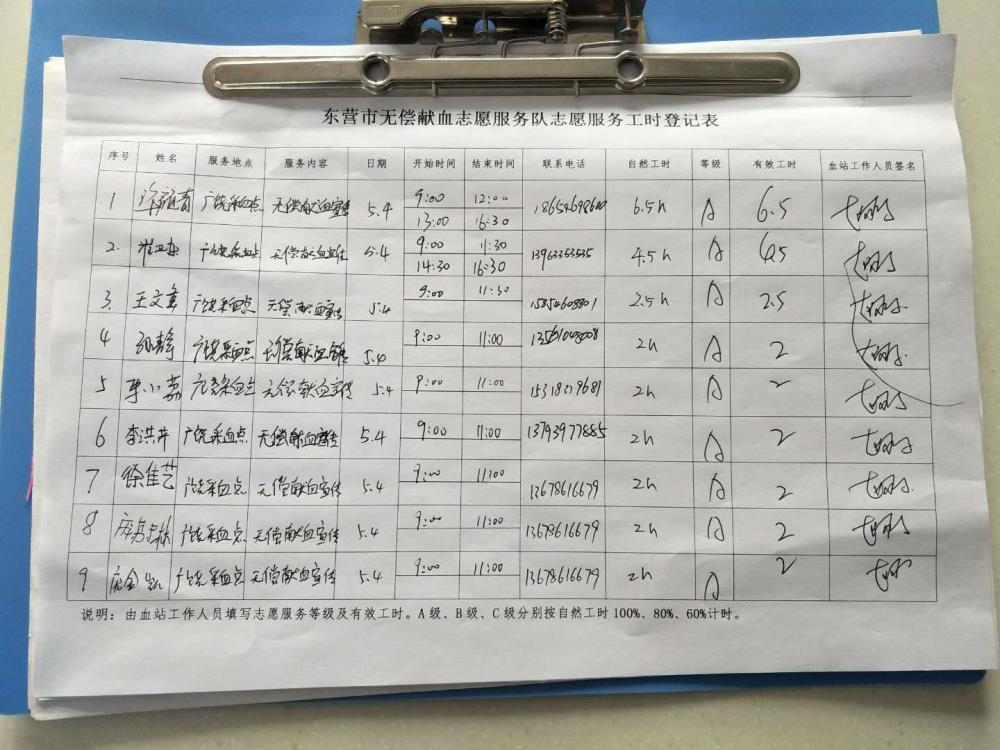 东营市无偿献血志愿服务队志愿服务工时登记表
序号 姓名 服务地点 服务内容 日期 开始时间 结束时间 联系电话 自然工时 等级 有效工时 血站工作人员签名
1 广饶采血点 无偿献血宣传 5.4 9:00 12:00 6.5h A 6.5
13:00 16:30
2. 广饶采血点 无偿献血宣传 5.4 9:00 11:30 13963353535 4.5h A 6.5
14:30 16:30
3. 王文章 广饶采血点 无偿献血宣传 5.4 9:00 11:30 2.5h A 2.5
4 孙静 广饶采血点 无偿献血宣传 5.4 9:00 11:00 13561048008 2h A 2
5 广饶采血点 无偿献血宣传 5.4 9:00 11:00 15318019681 2h A 2
6 李洪芹 广饶采血点 无偿献血宣传 5.4 9:00 11:00 13793977885 2h A 2
7 徐佳艺 广饶采血点 无偿献血宣传 5.4 9:00 11:00 13678616679 2h A 2
8 广饶采血点 无偿献血宣传 5.4 9:00 11:00 13678616679 2h A 2
9 广饶采血点 无偿献血宣传 5.4 9:00 11:00 13678616679 2h A 2
说明：由血站工作人员填写志愿服务等级及有效工时。A级、B级、C级分别按自然工时100%、80%、60%计时。